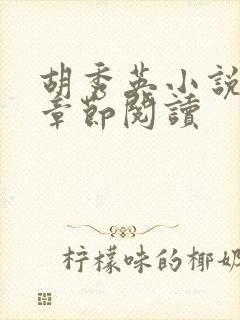 胡秀英小說
章節閱讀
柠檬味的椰奶